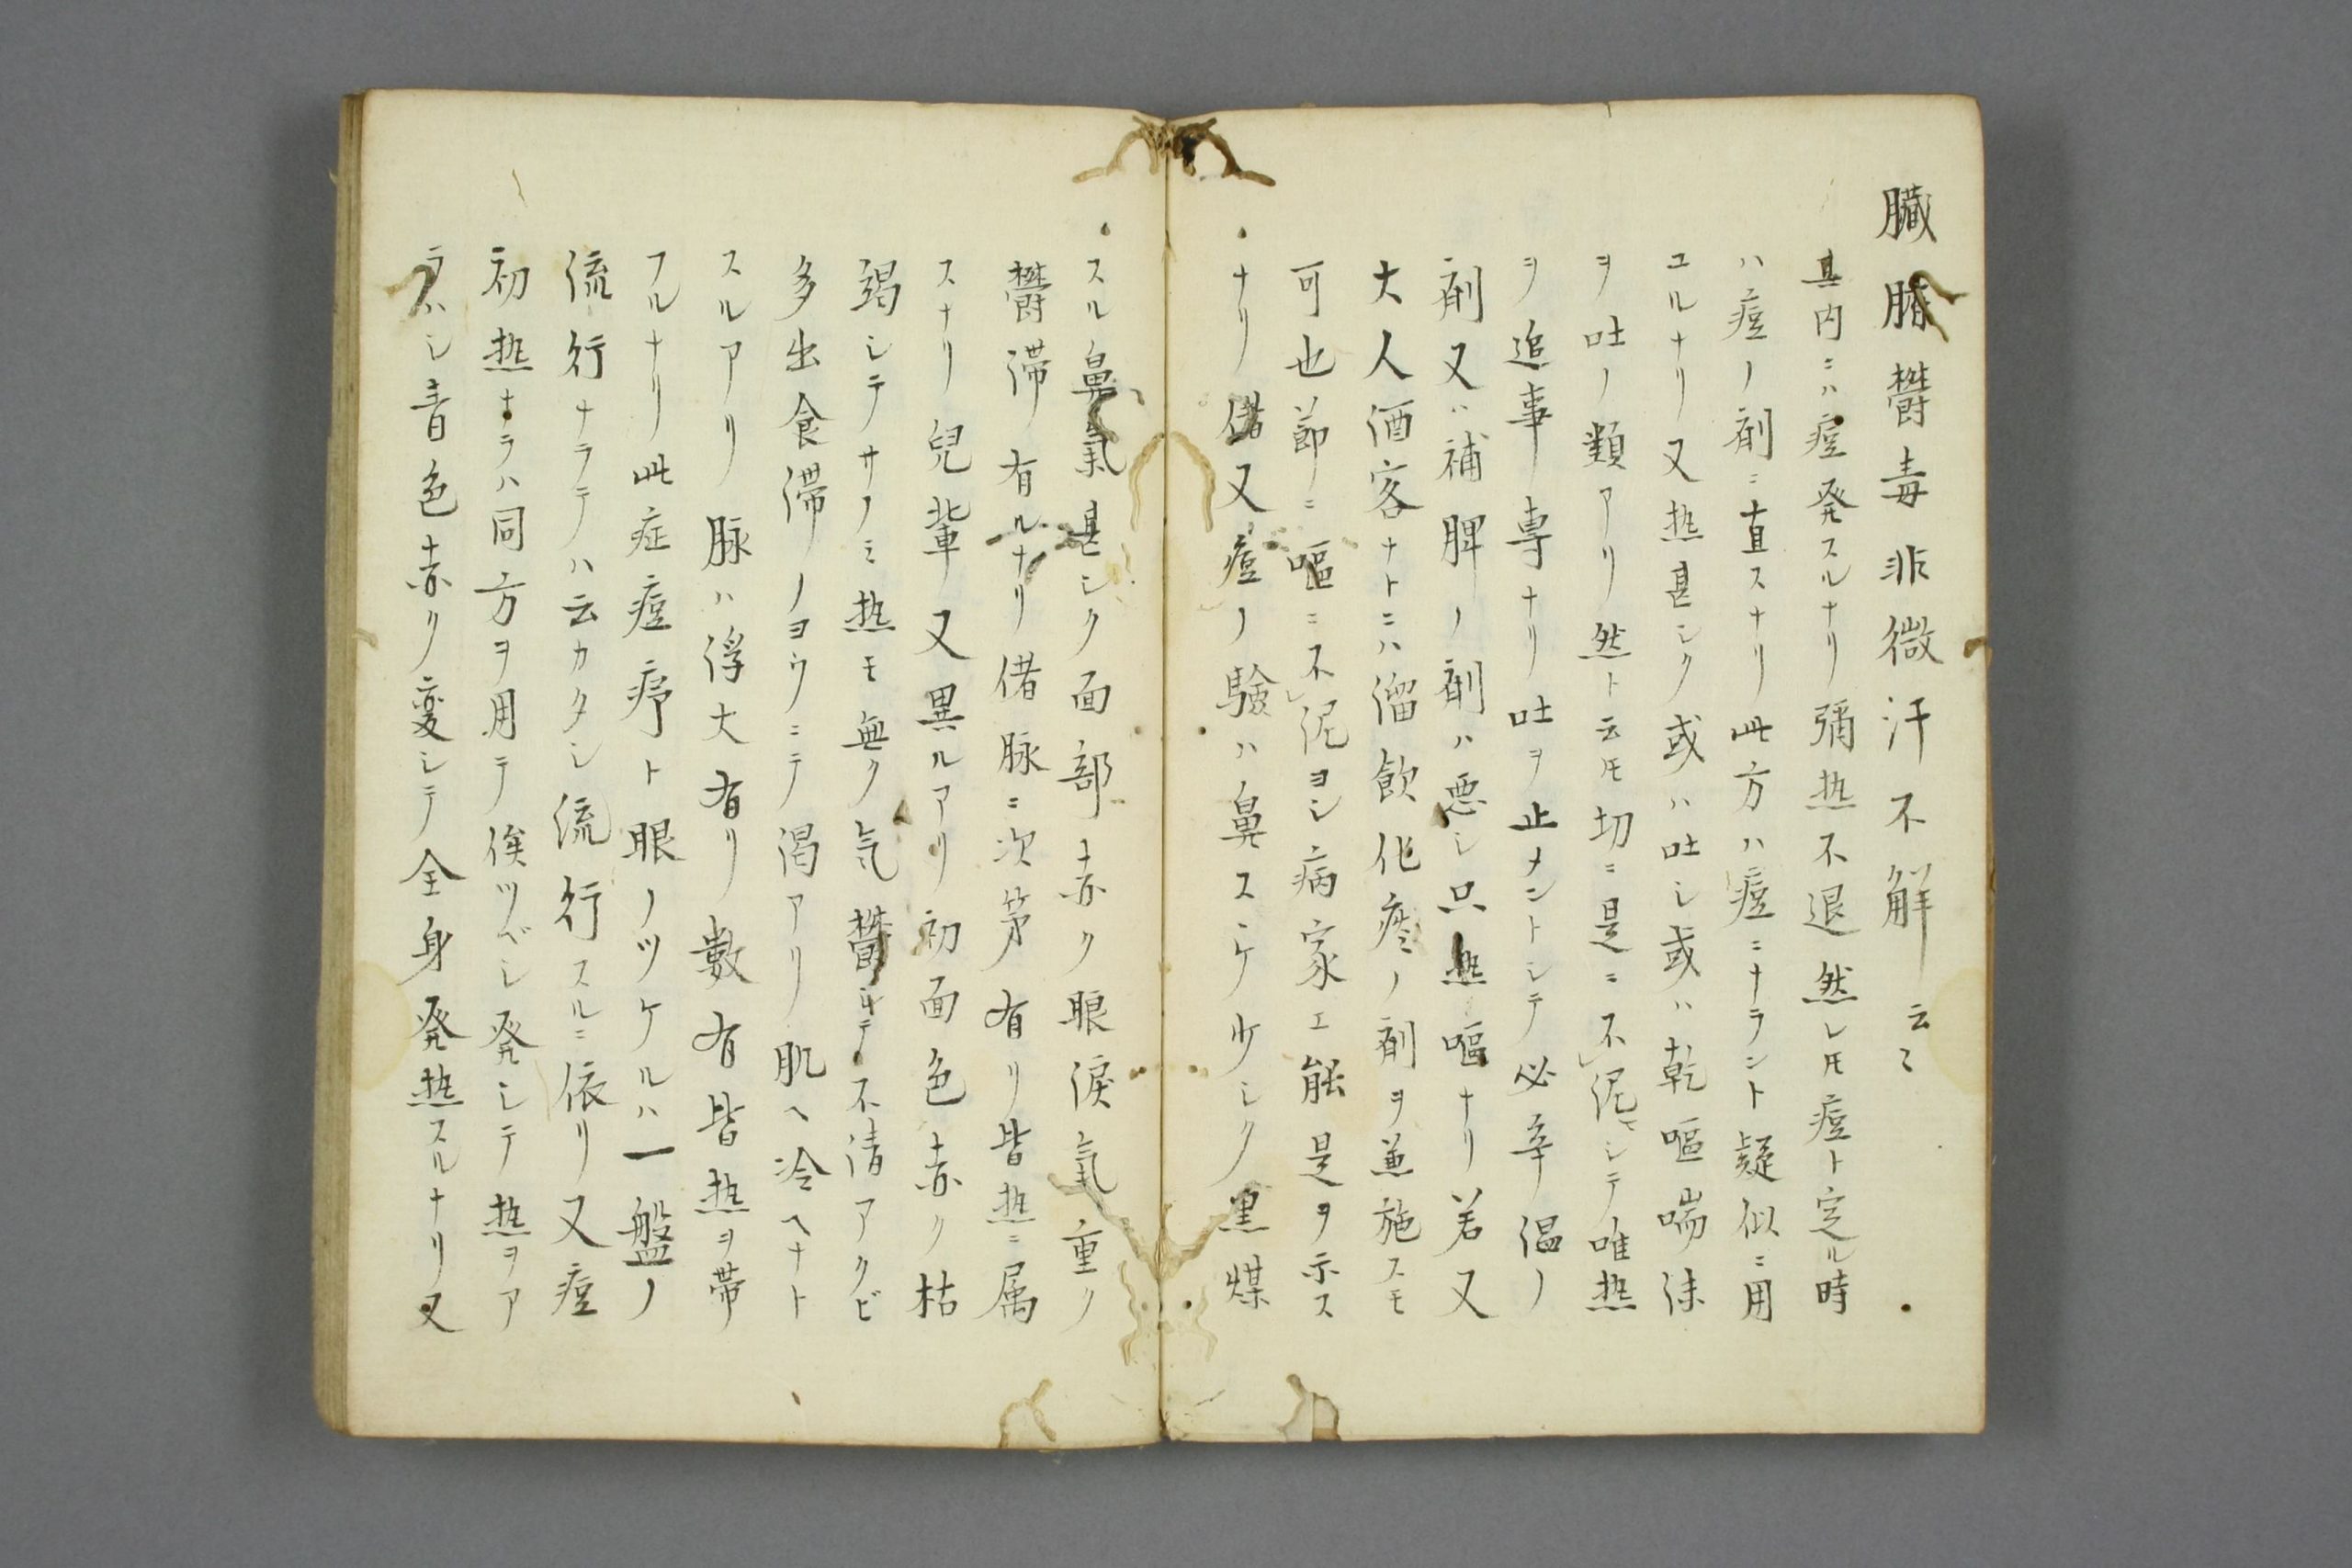 臓腑欝毒非微汗不解云〻
其内ニハ痘発スルナリ彌热不退然レ𪜈痘ト定ル時
ハ痘ノ剤ニ直スナリ此方ハ痘ニナラント疑似ニ用
ユルナリ又热甚シク或ハ吐シ或ハ乾嘔喘沫
ヲ吐ノ類アリ然ト云𪜈切ニ是ニ不泥シテ唯热
ヲ追事専ナリ吐ヲ止メントシテ必辛温ノ
剤又ハ補脾ノ剤ハ悪シ只热嘔ナリ若又
大人酒客ナトニハ溜飲化痰ノ剤ヲ兼施スモ
可也節ニ嘔ニ不泥ヨシ病家エ能是ヲ示ス
ナリ偖又痘ノ験ハ鼻スヽケ少シク黒煤
スル鼻氣甚シク面部赤ク眼涙氣重ク
欝滞有ルナリ偖脉ニ次第有リ皆热ニ属
スナリ兒輩又異ルアリ初面色赤ク枯
渇シテサノミ热モ無ク気欝シテ不清アクビ
多出食滞ノヨウニテ渇アリ肌ヘ冷ヘナト
スルアリ脉ハ浮大有リ數有皆热ヲ帯
フルナリ此症痘疹ト眼ノツケルハ一盤ノ
流行ナラテハ云カタシ流行スルニ依リ又痘
初热ナラハ同方ヲ用テ俟ツベシ発シテ热ヲア
ラハシ音色赤ク変シテ全身発热スルナリ又